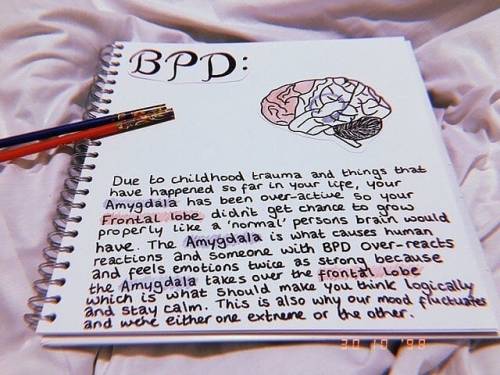 BPD:
Due to childhood trauma and things that
have happened so far in your life, your
Amygdala has been over-active so your
Frontal lobe didn't get chance to grow
properly like a 'normal' persons brain would
have. The Amygdala is what causes human
reactions and someone with BPD over-reacts
and feels emotions twice as strong because
the Amygdala takes over the frontal lobe
which is what should make you think logically
and stay calm. This is also why our mood fluctuates
and we're either one extreme or the other.
30 10 '98